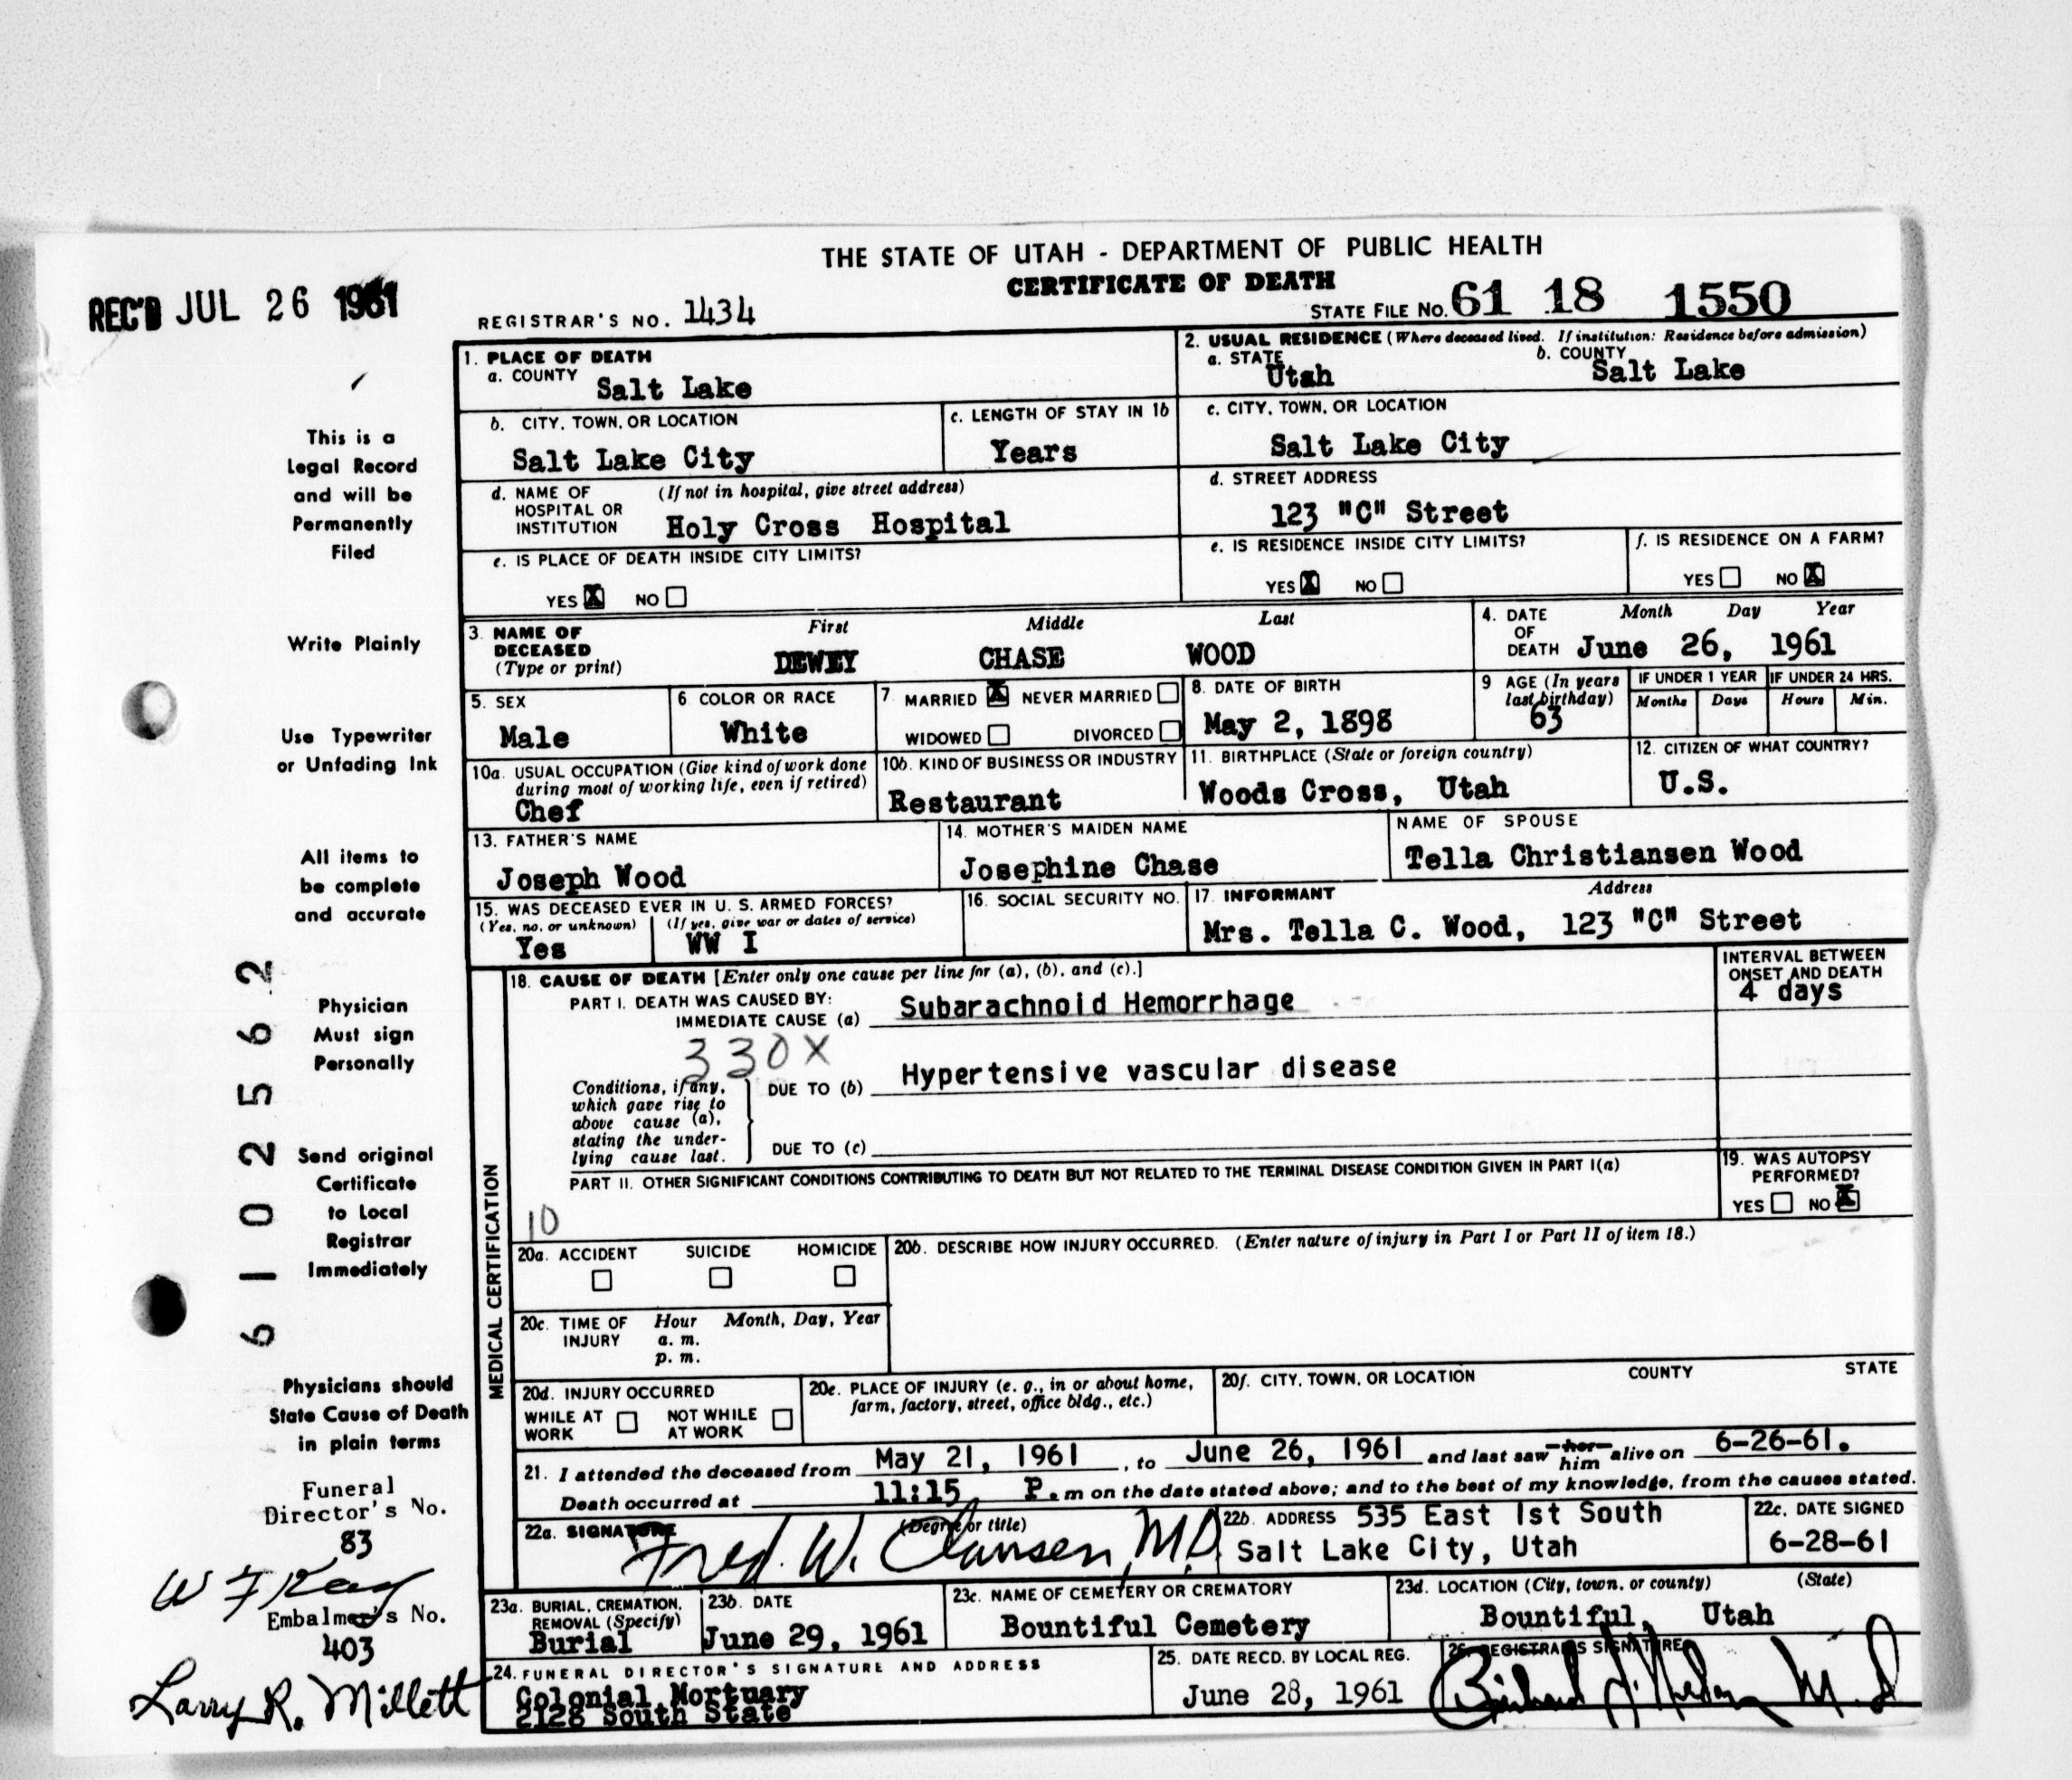 THE STATE OF UTAH - DEPARTMENT OF PUBLIC HEALTH
CERTIFICATE OF DEATH
REC'D JUL 26 1961
REGISTRAR'S NO. 1434
STATE FILE NO. 61 18 1550
1. PLACE OF DEATH
a. COUNTY Salt Lake
2. USUAL RESIDENCE (Where deceased lived. If institution: Residence before admission)
a. STATE Utah b. COUNTY Salt Lake
b. CITY, TOWN, OR LOCATION Salt Lake City
c. LENGTH OF STAY IN 1b Years
c. CITY, TOWN, OR LOCATION Salt Lake City
d. NAME OF HOSPITAL OR INSTITUTION (If not in hospital, give street address) Holy Cross Hospital
d. STREET ADDRESS 123 "C" Street
e. IS PLACE OF DEATH INSIDE CITY LIMITS?
YES X NO
e. IS RESIDENCE INSIDE CITY LIMITS?
YES X NO
f. IS RESIDENCE ON A FARM?
YES NO X
3. NAME OF DECEASED (Type or print)
First Middle Last
DEWEY CHASE WOOD
4. DATE OF DEATH Month Day Year
June 26, 1961
5. SEX Male
6. COLOR OR RACE White
7. MARRIED X NEVER MARRIED
WIDOWED DIVORCED
8. DATE OF BIRTH May 2, 1898
9 AGE (In years last birthday) 63
IF UNDER 1 YEAR Months Days
IF UNDER 24 HRS. Hours Min.
10a. USUAL OCCUPATION (Give kind of work done during most of working life, even if retired) Chef
10b. KIND OF BUSINESS OR INDUSTRY Restaurant
11. BIRTHPLACE (State or foreign country) Woods Cross, Utah
12. CITIZEN OF WHAT COUNTRY? U.S.
13. FATHER'S NAME Joseph Wood
14. MOTHER'S MAIDEN NAME Josephine Chase
NAME OF SPOUSE Tella Christiansen Wood
15. WAS DECEASED EVER IN U. S. ARMED FORCES?
(Yes, no, or unknown) (If yes, give war or dates of service)
Yes WW I
16. SOCIAL SECURITY NO.
17. INFORMANT Address
Mrs. Tella C. Wood, 123 "C" Street
MEDICAL CERTIFICATION
18. CAUSE OF DEATH [Enter only one cause per line for (a), (b), and (c).]
INTERVAL BETWEEN ONSET AND DEATH
4 days
PART I. DEATH WAS CAUSED BY:
IMMEDIATE CAUSE (a) Subarachnoid Hemorrhage
330X
Conditions, if any, which gave rise to above cause (a), stating the underlying cause last.
DUE TO (b) Hypertensive vascular disease
DUE TO (c)
PART II. OTHER SIGNIFICANT CONDITIONS CONTRIBUTING TO DEATH BUT NOT RELATED TO THE TERMINAL DISEASE CONDITION GIVEN IN PART I(a)
10
19. WAS AUTOPSY PERFORMED?
YES NO X
20a. ACCIDENT SUICIDE HOMICIDE
20b. DESCRIBE HOW INJURY OCCURRED. (Enter nature of injury in Part I or Part II of item 18.)
20c. TIME OF INJURY Hour Month, Day, Year
a. m.
p. m.
20d. INJURY OCCURRED
WHILE AT WORK NOT WHILE AT WORK
20e. PLACE OF INJURY (e. g., in or about home, farm, factory, street, office bldg., etc.)
20f. CITY, TOWN, OR LOCATION COUNTY STATE
21. I attended the deceased from May 21, 1961, to June 26, 1961 and last saw her him alive on 6-26-61.
Death occurred at 11:15 P. m on the date stated above; and to the best of my knowledge, from the causes stated.
22a. SIGNATURE (Degree or title)
Fred. W. Clausen, M.D.
22b. ADDRESS 535 East 1st South
Salt Lake City, Utah
22c. DATE SIGNED
6-28-61
23a. BURIAL, CREMATION, REMOVAL (Specify) Burial
23b. DATE June 29, 1961
23c. NAME OF CEMETERY OR CREMATORY Bountiful Cemetery
23d. LOCATION (City, town, or county) (State)
Bountiful, Utah
24. FUNERAL DIRECTOR'S SIGNATURE AND ADDRESS
Colonial Mortuary
2128 South State
25. DATE RECD. BY LOCAL REG.
June 28, 1961
26. REGISTRAR'S SIGNATURE
M.D
This is a
Legal Record
and will be
Permanently
Filed
Write Plainly
Use Typewriter
or Unfading Ink
All items to
be complete
and accurate
Physician
Must sign
Personally
Send original
Certificate
to Local
Registrar
Immediately
Physicians should
State Cause of Death
in plain terms
Funeral
Director's No.
83
W F Kay
Embalmer's No.
403
Larry R. Millett
61025662